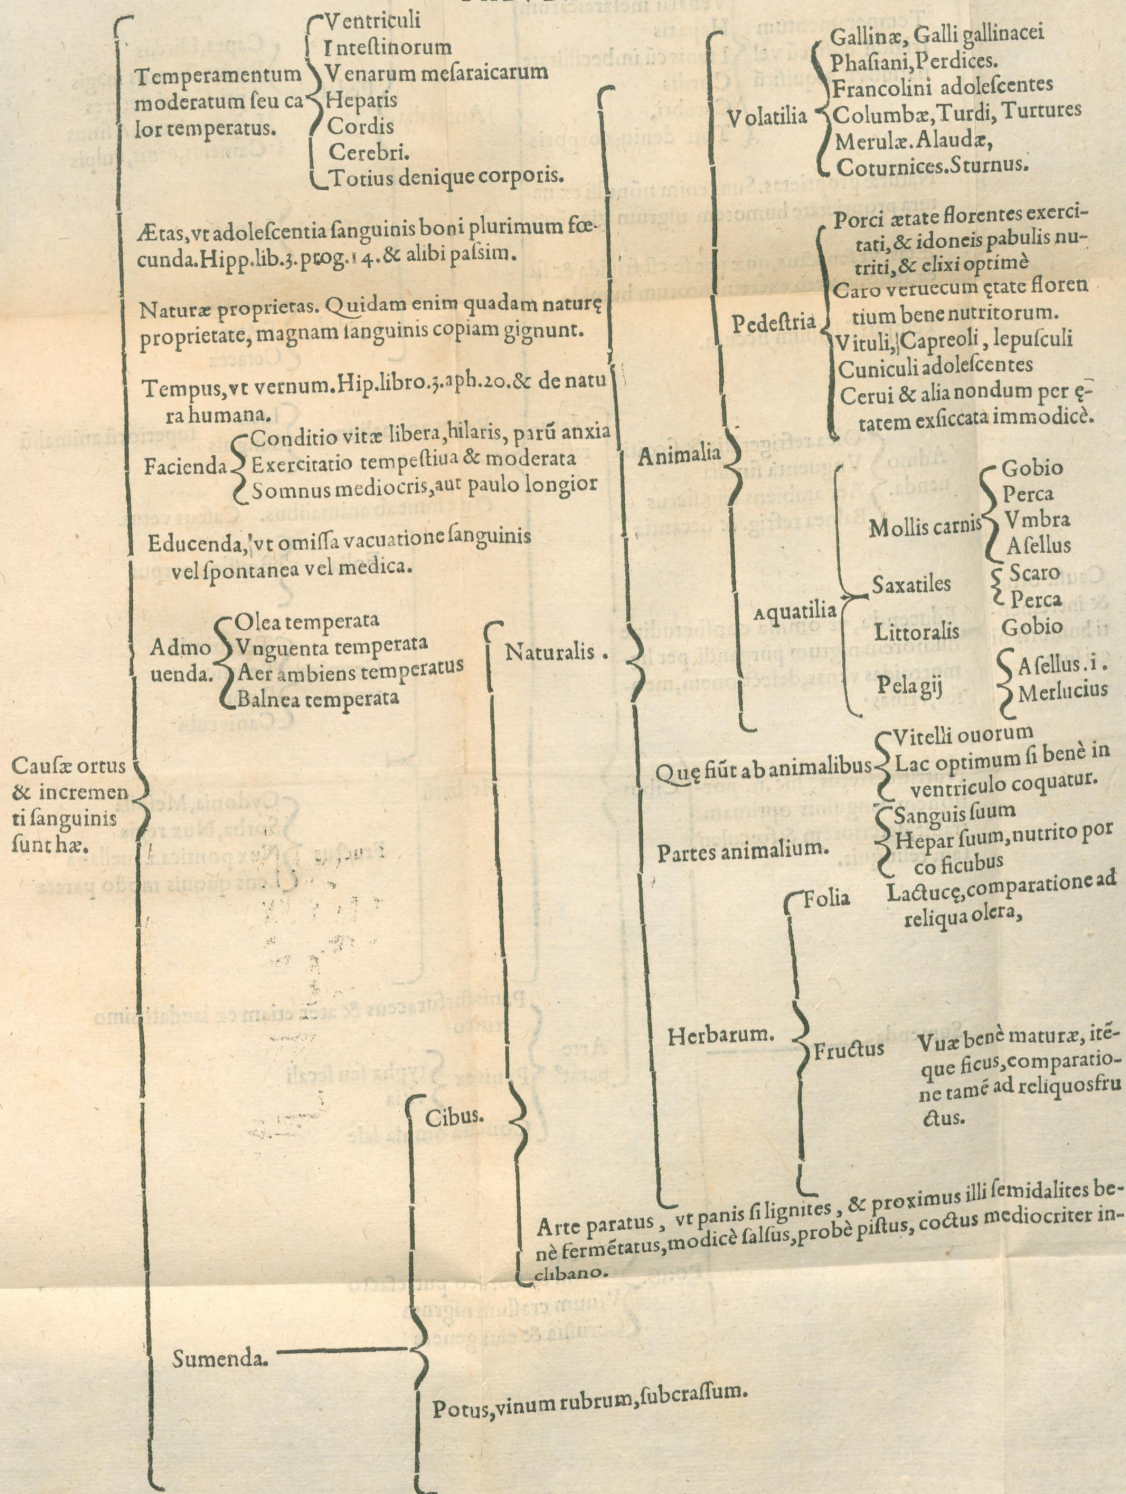 Causæ ortus
& incremen
ti sanguinis
sunt hæ.
Temperamentum
moderatum seu ca
lor temperatus.
Ventriculi
Intestinorum
Venarum mesaraicarum
Hepatis
Cordis
Cerebri.
Totius denique corporis.
Ætas, vt adolescentia sanguinis boni plurimum fœ-
cunda. Hipp. lib. 3. prog. 14. & alibi passim.
Naturæ proprietas. Quidam enim quadam naturę
proprietate, magnam sanguinis copiam gignunt.
Tempus, vt vernum. Hip. libro. 3. aph. 20. & de natu
ra humana.
Facienda
Conditio vitæ libera, hilaris, parũ anxia
Exercitatio tempestiua & moderata
Somnus mediocris, aut paulo longior
Educenda, vt omissa vacuatione sanguinis
vel spontanea vel medica.
Admo
uenda.
Olea temperata
Vnguenta temperata
Aer ambiens temperatus
Balnea temperata
Sumenda.
Cibus.
Naturalis.
Animalia
Volatilia
Gallinæ, Galli gallinacei
Phasiani, Perdices.
Francolini adolescentes
Columbæ, Turdi, Turtures
Merulæ. Alaudæ,
Coturnices. Sturnus.
Pedestria
Porci ætate florentes exerci-
tati, & idoneis pabulis nu-
triti, & elixi optimè
Caro veruecum ętate floren
tium bene nutritorum.
Vituli, Capreoli, lepusculi
Cuniculi adolescentes
Cerui & alia nondum per ę-
tatem exsiccata immodicè.
Aquatilia
Mollis carnis
Gobio
Perca
Vmbra
Asellus
Saxatiles
Scaro
Perca
Littoralis
Gobio
Pelagij
Asellus. i.
Merlucius
Quę fiũt ab animalibus
Vitelli ouorum
Lac optimum si benè in
ventriculo coquatur.
Partes animalium.
Sanguis suum
Hepar suum, nutrito por
co ficubus
Herbarum.
Folia
Lactucę, comparatione ad
reliqua olera,
Fructus
Vuæ benè maturæ, itẽ-
que ficus, comparatio-
ne tamẽ ad reliquos fru
ctus.
Arte paratus, vt panis si lignites, & proximus illi semidalites be-
nè fermẽtatus, modicè salsus, probè pistus, coctus mediocriter in-
clibano.
Potus, vinum rubrum, subcrassum.